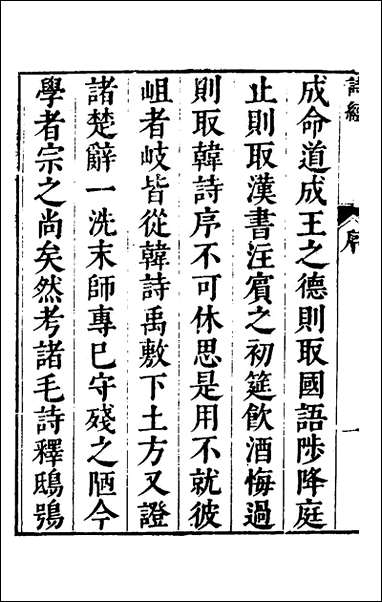 詩經
序
一
成命道成王之德則取國語陟降庭
止則取漢書注賔之初筵飮酒悔過
則取韓詩序不可休思是用不就彼
岨者岐皆從韓詩禹敷下土方又證
諸楚辭一洗末師專已守殘之陋今
學者宗之尚矣然考諸毛詩釋鴟鴞